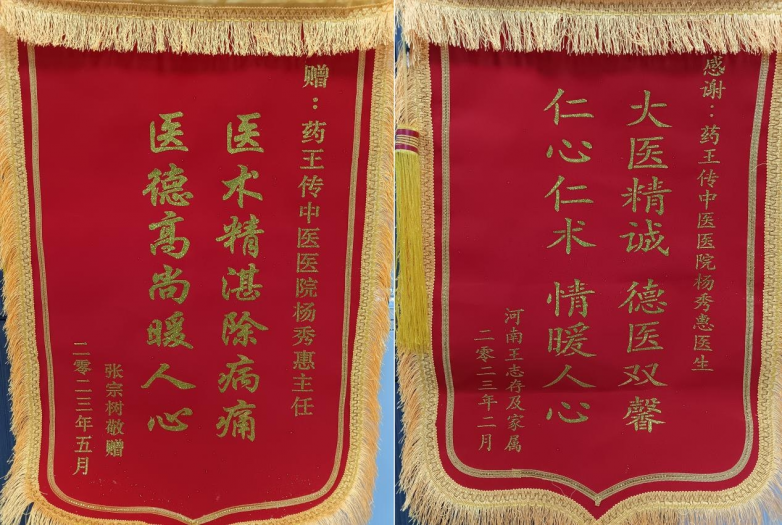 赠：药王传中医医院杨秀惠主任
医术精湛除病痛
医德高尚暖人心
张宗树敬赠
二零二三年五月
感谢：药王传中医医院杨秀惠医生
大医精诚 德医双馨
仁心仁术 情暖人心
河南王志存及家属
二零二三年二月